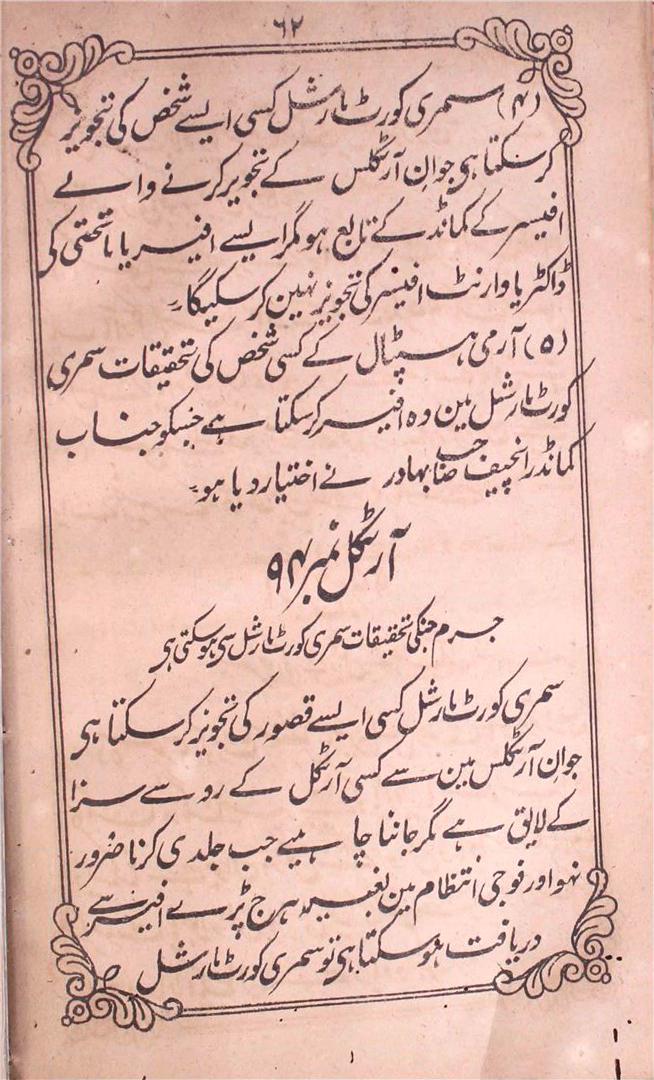 ۶۲
(۴) سمری کورٹ مارشل کسی ایسے شخص کی تجویز
کرسکتا ہی جو ان آرٹکلس کے تجویز کرنے والے
افیسر کے کمانڈ کے تابع ہو مگر ایسے افیسر یا ماتحتی کی
ڈاکٹر یا وارنٹ افیسر کی تجویز نہین کرسکیگا۔
(۵) آرمی ہسپٹال کے کسی شخص کی تحقیقات سمری
کورٹ مارشل مین وہ افیسر کرسکتا ہے جسکو جناب
کمانڈر انچیف صاحب بہادر نے اختیار دیا ہو۔
آرٹکل نمبر ۹۴
جرم جنکی تحقیقات سمری کورٹ مارشل سی ہوسکتی ہی
سمری کورٹ مارشل کسی ایسے قصور کی تجویز کرسکتا ہی
جو ان آرٹکلس مین سے کسی آرٹکل کے رو سے سزا
کے لایق ہے مگر جاننا چاہیے جب جلدی کرنا ضرور
نہو اور فوجی انتظام مین بغیر ہرج پڑے افیسر سے
دریافت ہوسکتا ہی تو سمری کورٹ مارشل